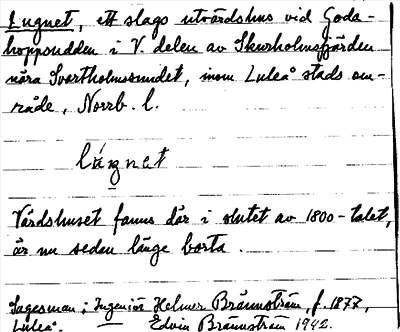 Lugnet, ett slags utvärdshus vid Goda-
hoppsudden i V. delen av Skurholmsfjärden
nära Svartholmssundet, inom Luleå stads om-
råde, Norrb. l.
lágnet
Värdshuset fanns där i slutet av 1800-talet,
är nu sedan länge borta.
Sagesman: Ingeniör Helmer Brännström, f. 1877,
Luleå. Edvin Brännström 1942.